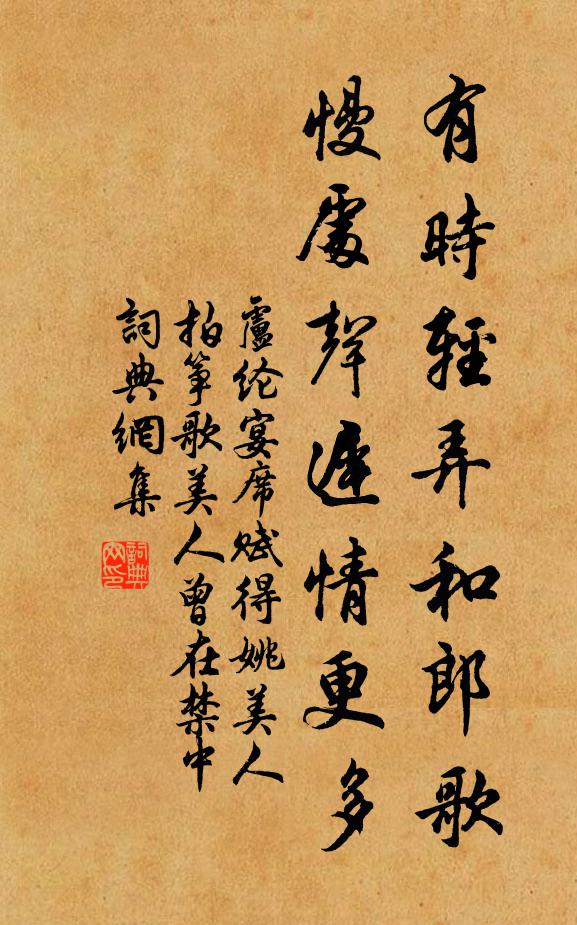 有時輕弄和郎歌
慢處聲遲情更多
盧纶宴席賦得姚美人
拍箏歌美人曾在禁中
詞典網集
詞典
网印